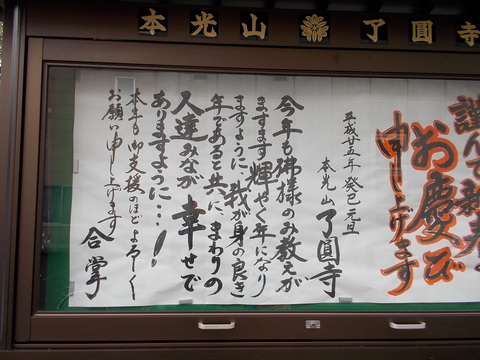 本光山 了圓寺
謹んで新春
お慶び
申し上げます
平成廿五年 癸巳 元旦
本光山 了圓寺
今年も佛様のみ教えが
ますます輝やく年になり
ますように、我が身の良き
年であると共に、まわりの
人達みなが幸せで
ありますように…！
本年も御支援のほどよろしく
お願い申し上げます
合掌